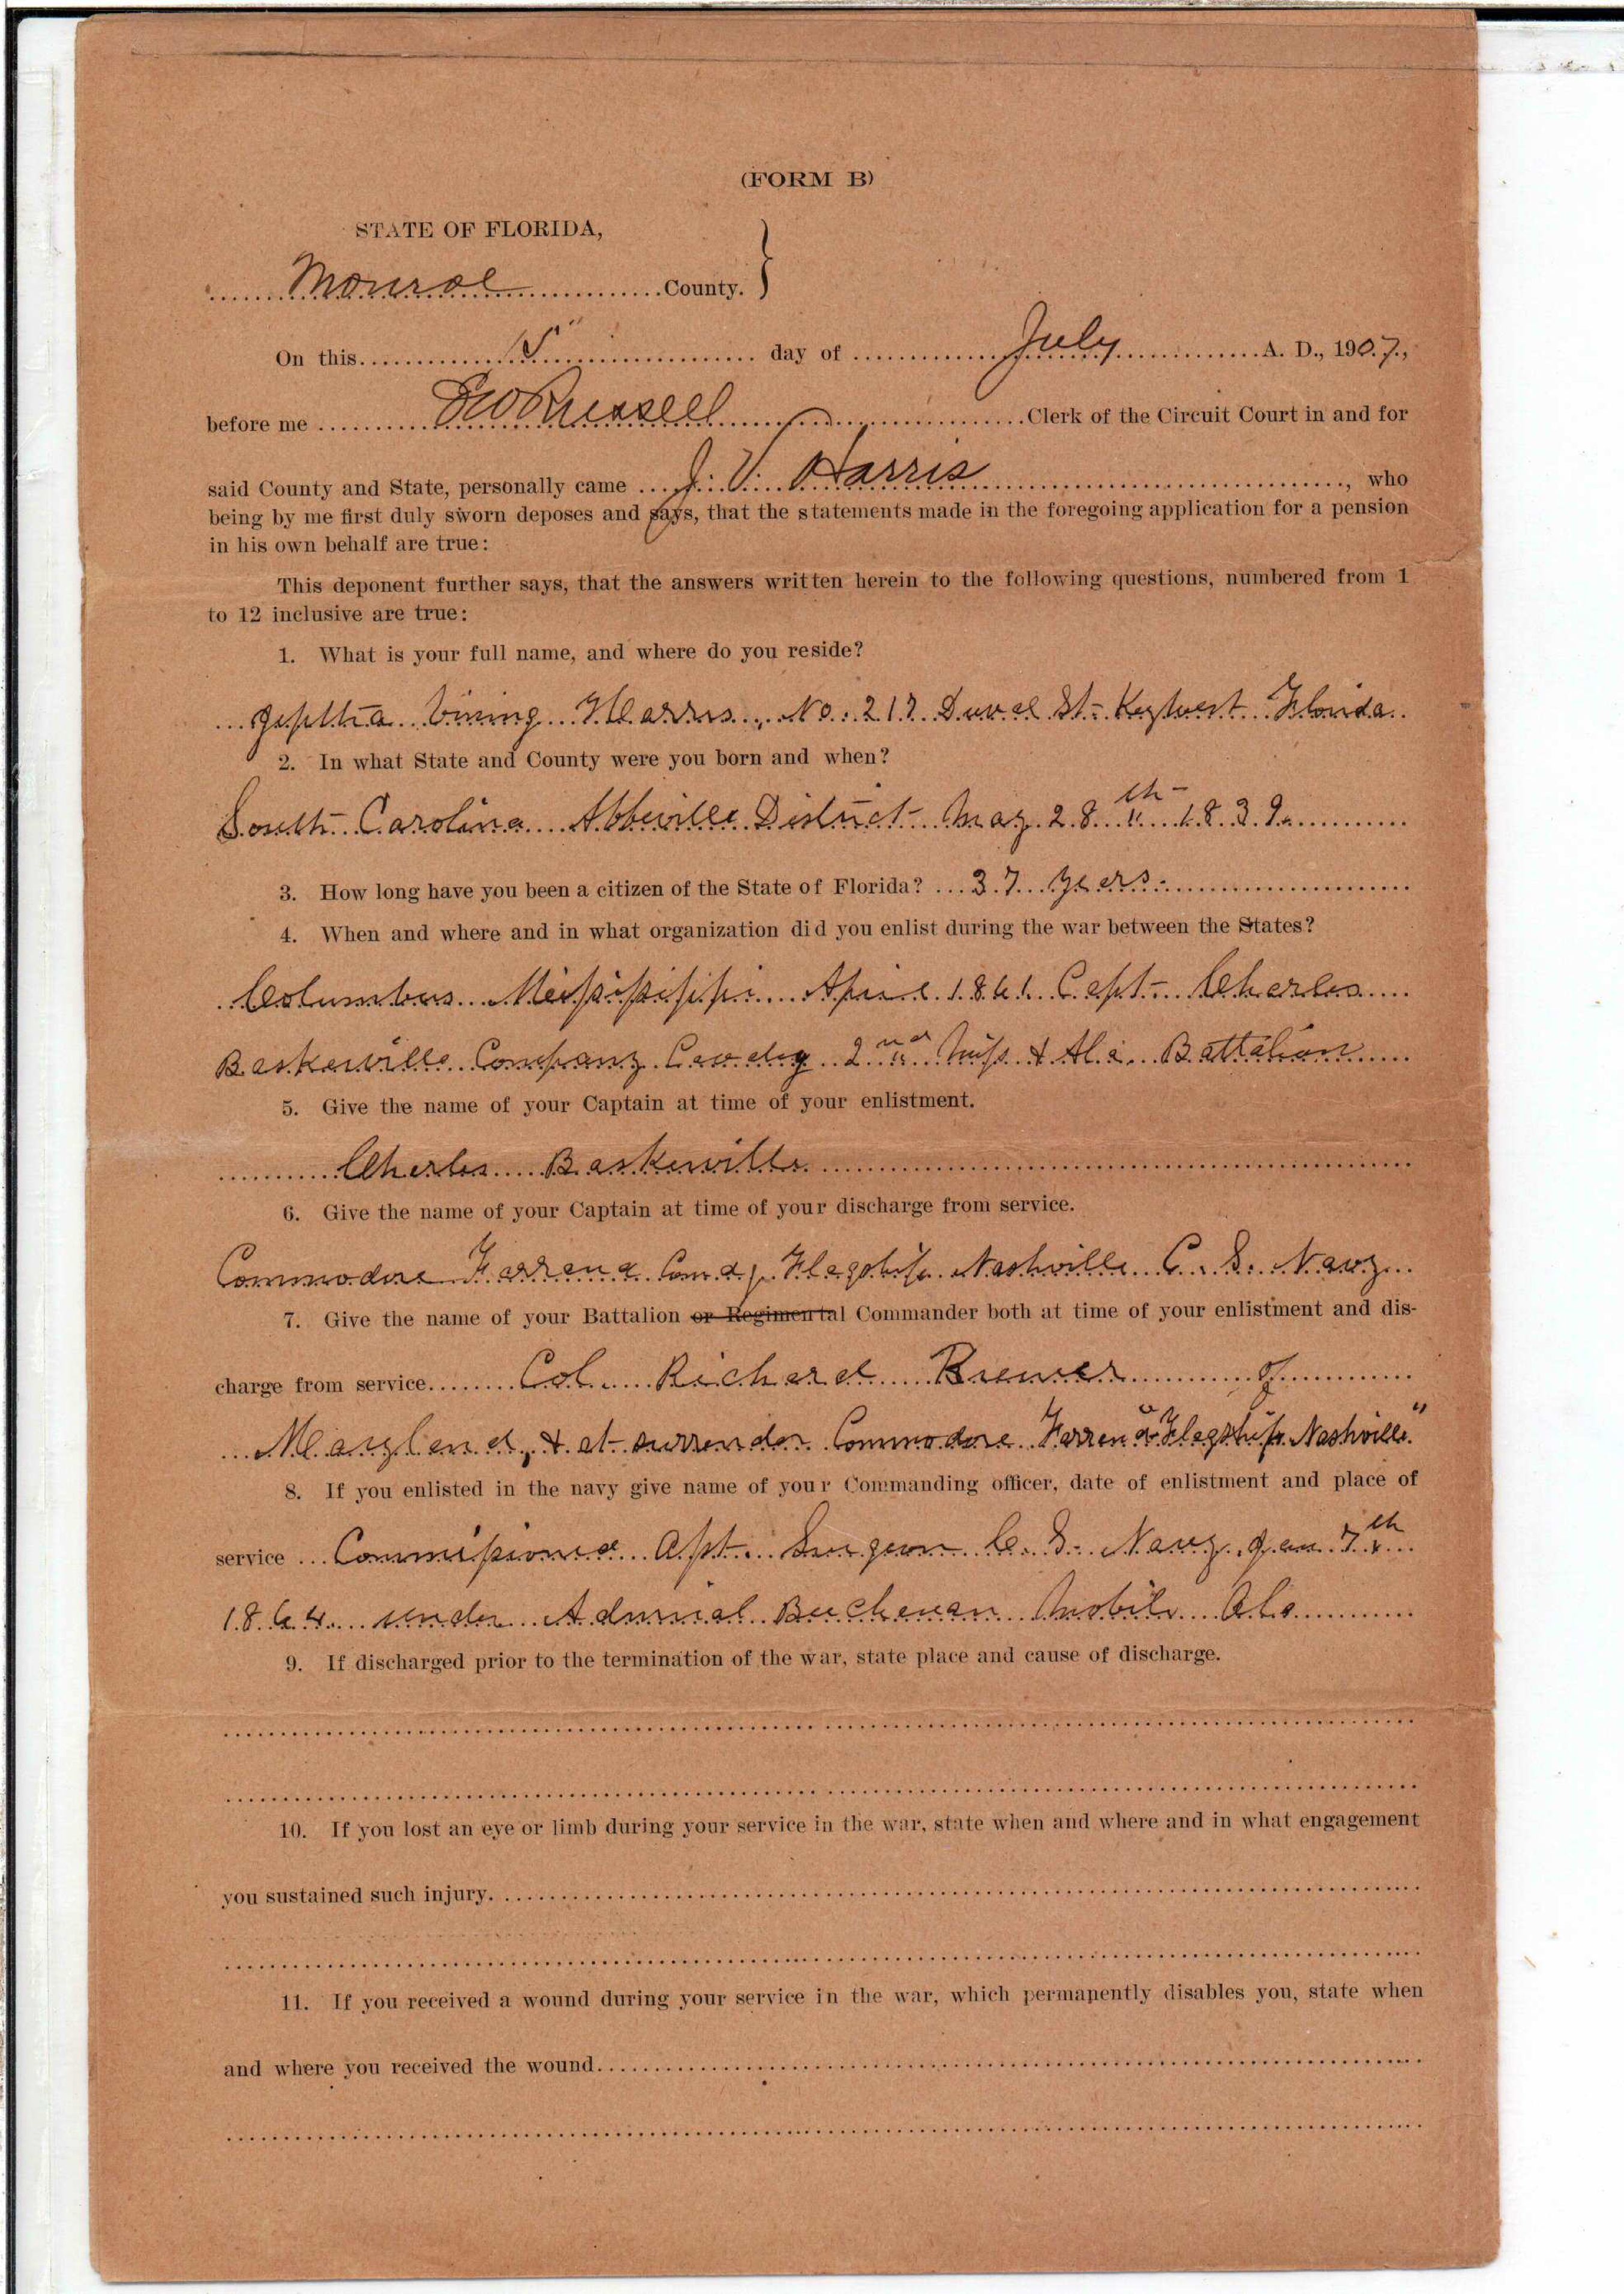 (FORM B)
STATE OF FLORIDA,
Monroe County.
On this 5" day of July A. D., 1907,
before me Russell Clerk of the Circuit Court in and for
said County and State, personally came J. V. Harris, who
being by me first duly sworn deposes and says, that the statements made in the foregoing application for a pension
in his own behalf are true:
This deponent further says, that the answers written herein to the following questions, numbered from 1
to 12 inclusive are true:
1. What is your full name, and where do you reside?
Jeptha Vining Harris, No. 217 Duval St- Key West Florida
2. In what State and County were you born and when?
South Carolina Abbeville District May 28th 1839
3. How long have you been a citizen of the State of Florida? 37 years.
4. When and where and in what organization did you enlist during the war between the States?
Columbus Mississippi April 1861 Capt- Charles
Baskerville Company Cavalry 2nd Miss & Ala Battalion
5. Give the name of your Captain at time of your enlistment.
Charles Baskerville
6. Give the name of your Captain at time of your discharge from service.
Commodore Farrand Comdg Flagship Nashville C. S. Navy
7. Give the name of your Battalion or Regimental Commander both at time of your enlistment and dis-
charge from service Col. Richard Brewer of
Maryland, & at surrender Commodore Farrand "Flagship Nashville"
8. If you enlisted in the navy give name of your Commanding officer, date of enlistment and place of
service Commissioned Asst. Surgeon C. S. Navy Jan 7th
1864 under Admiral Buchanan Mobile Ala
9. If discharged prior to the termination of the war, state place and cause of discharge.
10. If you lost an eye or limb during your service in the war, state when and where and in what engagement
you sustained such injury.
11. If you received a wound during your service in the war, which permanently disables you, state when
and where you received the wound